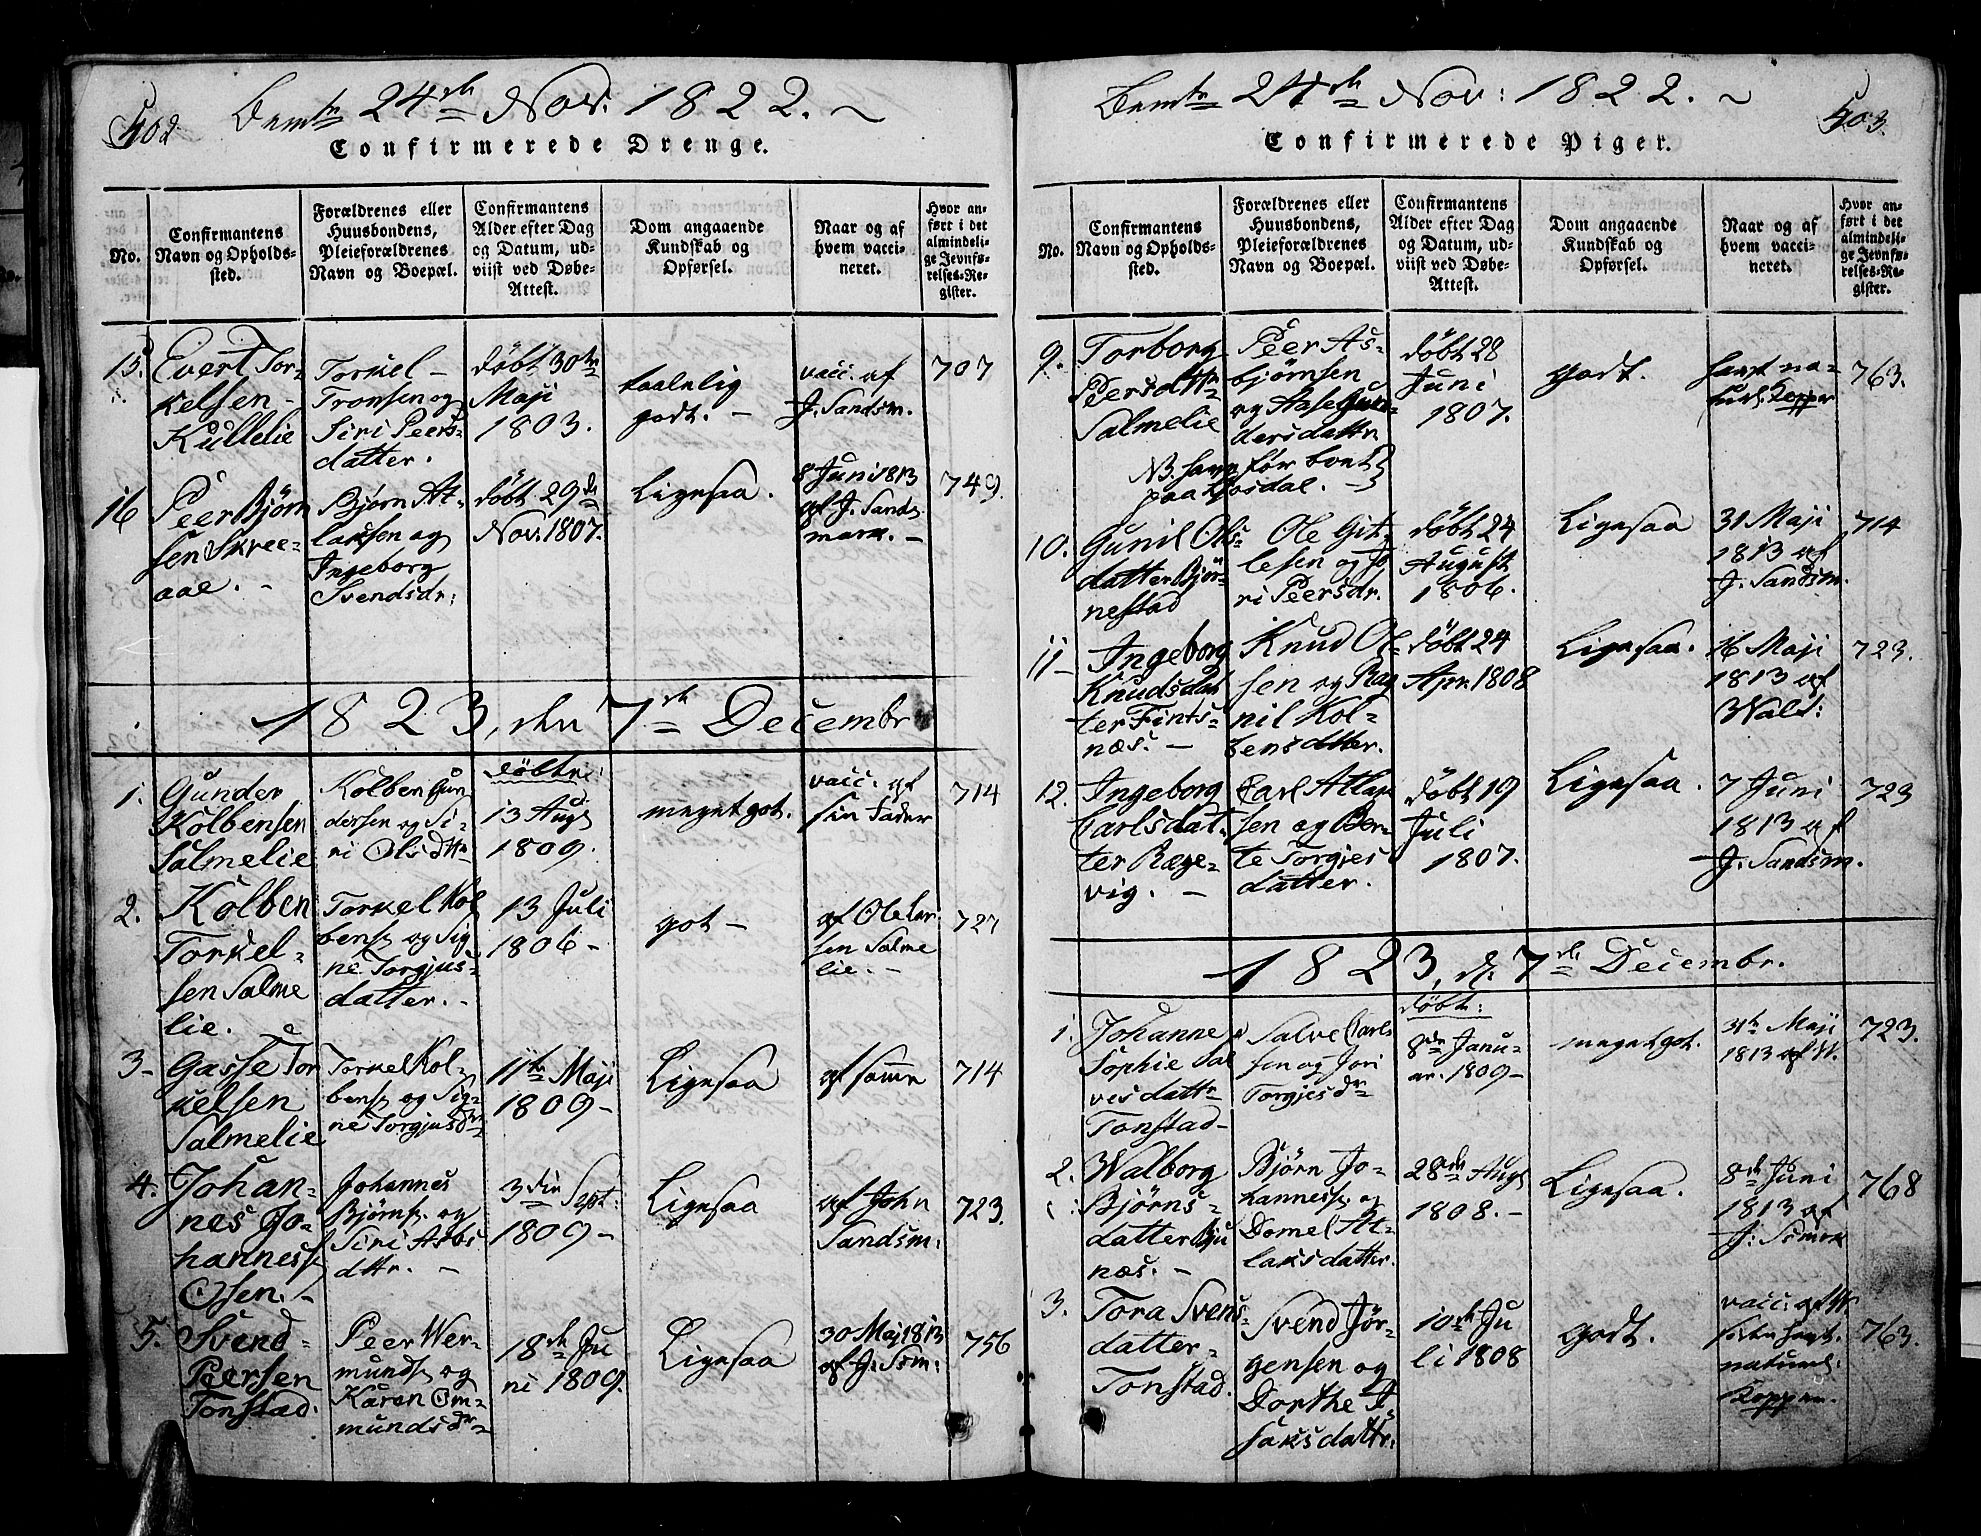 502
Bemte 24de Nov. 1822.
Confirmerede Drenge.
No.
Confirmantens
Navn og Opholds-
sted.
Forældrenes eller
Huusbondens,
Pleieforældrenes
Navn og Boepæl.
Confirmantens
Alder efter Dag
og Datum, ud-
viist ved Døbe-
Attest.
Dom angaaende
Kundskab og
Opførsel.
Naar og af
hvem vacci-
neret.
Hvor an-
ført i det
almindeli-
ge Jevnfø-
relses-Re-
gister.
15.
Evert Tor-
kelsen
Kullelie
Torkel
Tronsen og
Siri Peers-
datter.
døbt 30te
Maji
1803.
taalelig
godt.
vacc. af
J. Sandsm.
707
16
Peer Bjørn
sen Skree-
aae.
Bjørn At-
laksen og
Ingeborg
Svendsdr:
døbt 29de
Nov. 1807.
Ligesaa.
8 Juni 1813
af J. Sands
mark.
749.
1823, den 7de Decembr
1.
Gunder
Kolbensen
Salmelie
Kolben Gun
dersen og Si-
ri Olsdttr
døbte:
13 Aug.
1809.
meget got.
vacc. af
sin Fader
714
2.
Kolben
Torkel-
sen Salme
lie.
Torkel Kol
bens. og Sig
ne Torgjus-
datter.
13 Juli
1806
got
af Ole Lar
sen Salme
lie.
727
3
Gasse Tor
kelsen
Salmelie
Torkel Kol-
bens. og Sig-
ne Torgjusdr
11te Maji
1809
Ligesaa
af samme
714
4.
Johan-
nes Jo-
hanness.
Osen.
Johannes
Bjørns. og
Siri Asbs
dttr.
3die Sept:
1809
Ligesaa
af John
Sandsm:
723.
5.
Svend
Peersen
Tonstad.
Peer Wer-
munds. og
Karen Om-
mundsdr
18de Ju
ni 1809.
Ligesaa
30 Maj 1813
af J. Ssm:
756
503.
Bemte 24de Nov: 1822.
Confirmerede Piger.
No.
Confirmantens
Navn og Opholds-
sted.
Forældrenes eller
Huusbondens,
Pleieforældrenes
Navn og Boepæl.
Confirmantens
Alder efter Dag
og Datum, ud-
viist ved Døbe-
Attest.
Dom angaaende
Kundskab og
Opførsel.
Naar og af
hvem vacci-
neret.
Hvor an-
ført i det
almindeli-
ge Jevnfø-
relses-Re-
gister.
9.
Torborg
Peersdttr
Salmelie
Peer As-
bjørnsen
og Aase Gun-
dersdattr.
NB. har før boet
paa Josdal.
døbt 28
Juni
1807.
godt.
havt na-
turl. Kopper
763.
10.
Gunil Ols-
datter Bjør-
nestad
Ole Git-
lesen og Jo
ri Peersdr.
døbt 24
August
1806.
Ligesaa
31 Maji
1813 af
J. Sandsm.
714
11
Ingeborg
Knudsdat
ter Fints-
næs.
Knud Ol-
sen og Rag
nil Kol-
bensdatter.
døbt 24
Apr. 1808
Ligesaa.
16 Maji
1813 af
Wald:
723.
12.
Ingeborg
Carlsdat-
ter Ræge-
vig.
Carl Atlak
sen og Ber-
te Torgjes
datter.
døbt 19
Juli
1807.
Ligesaa.
7 Juni
1813 af
J. Sandsm.
723
1823, d. 7de Decembr.
1.
Johanne
Sophie Sal
vesdattr
Tonstad
Salve Carls
sen og Jori
Torgjesdr
døbt:
8de Janu-
ar. 1809
meget got.
31te Maji
1813 af W.
723.
2.
Walborg
Bjørns-
datter Bju
næs.
Bjørn Jo-
hanness. og
Domel At-
laksdatter.
28de Aug.
1808.
Ligesaa.
8de Juni
1813 af
768
3.
Tora Svens-
datter
Tonstad.
Svend Jör-
gensen og
Dorthe I-
saksdattr.
10de Ju
li 1808
godt.
vacc. af W.
siden havt
naturl:
Kopper.
763.